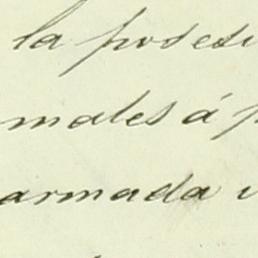 la posesi
males á p
armada